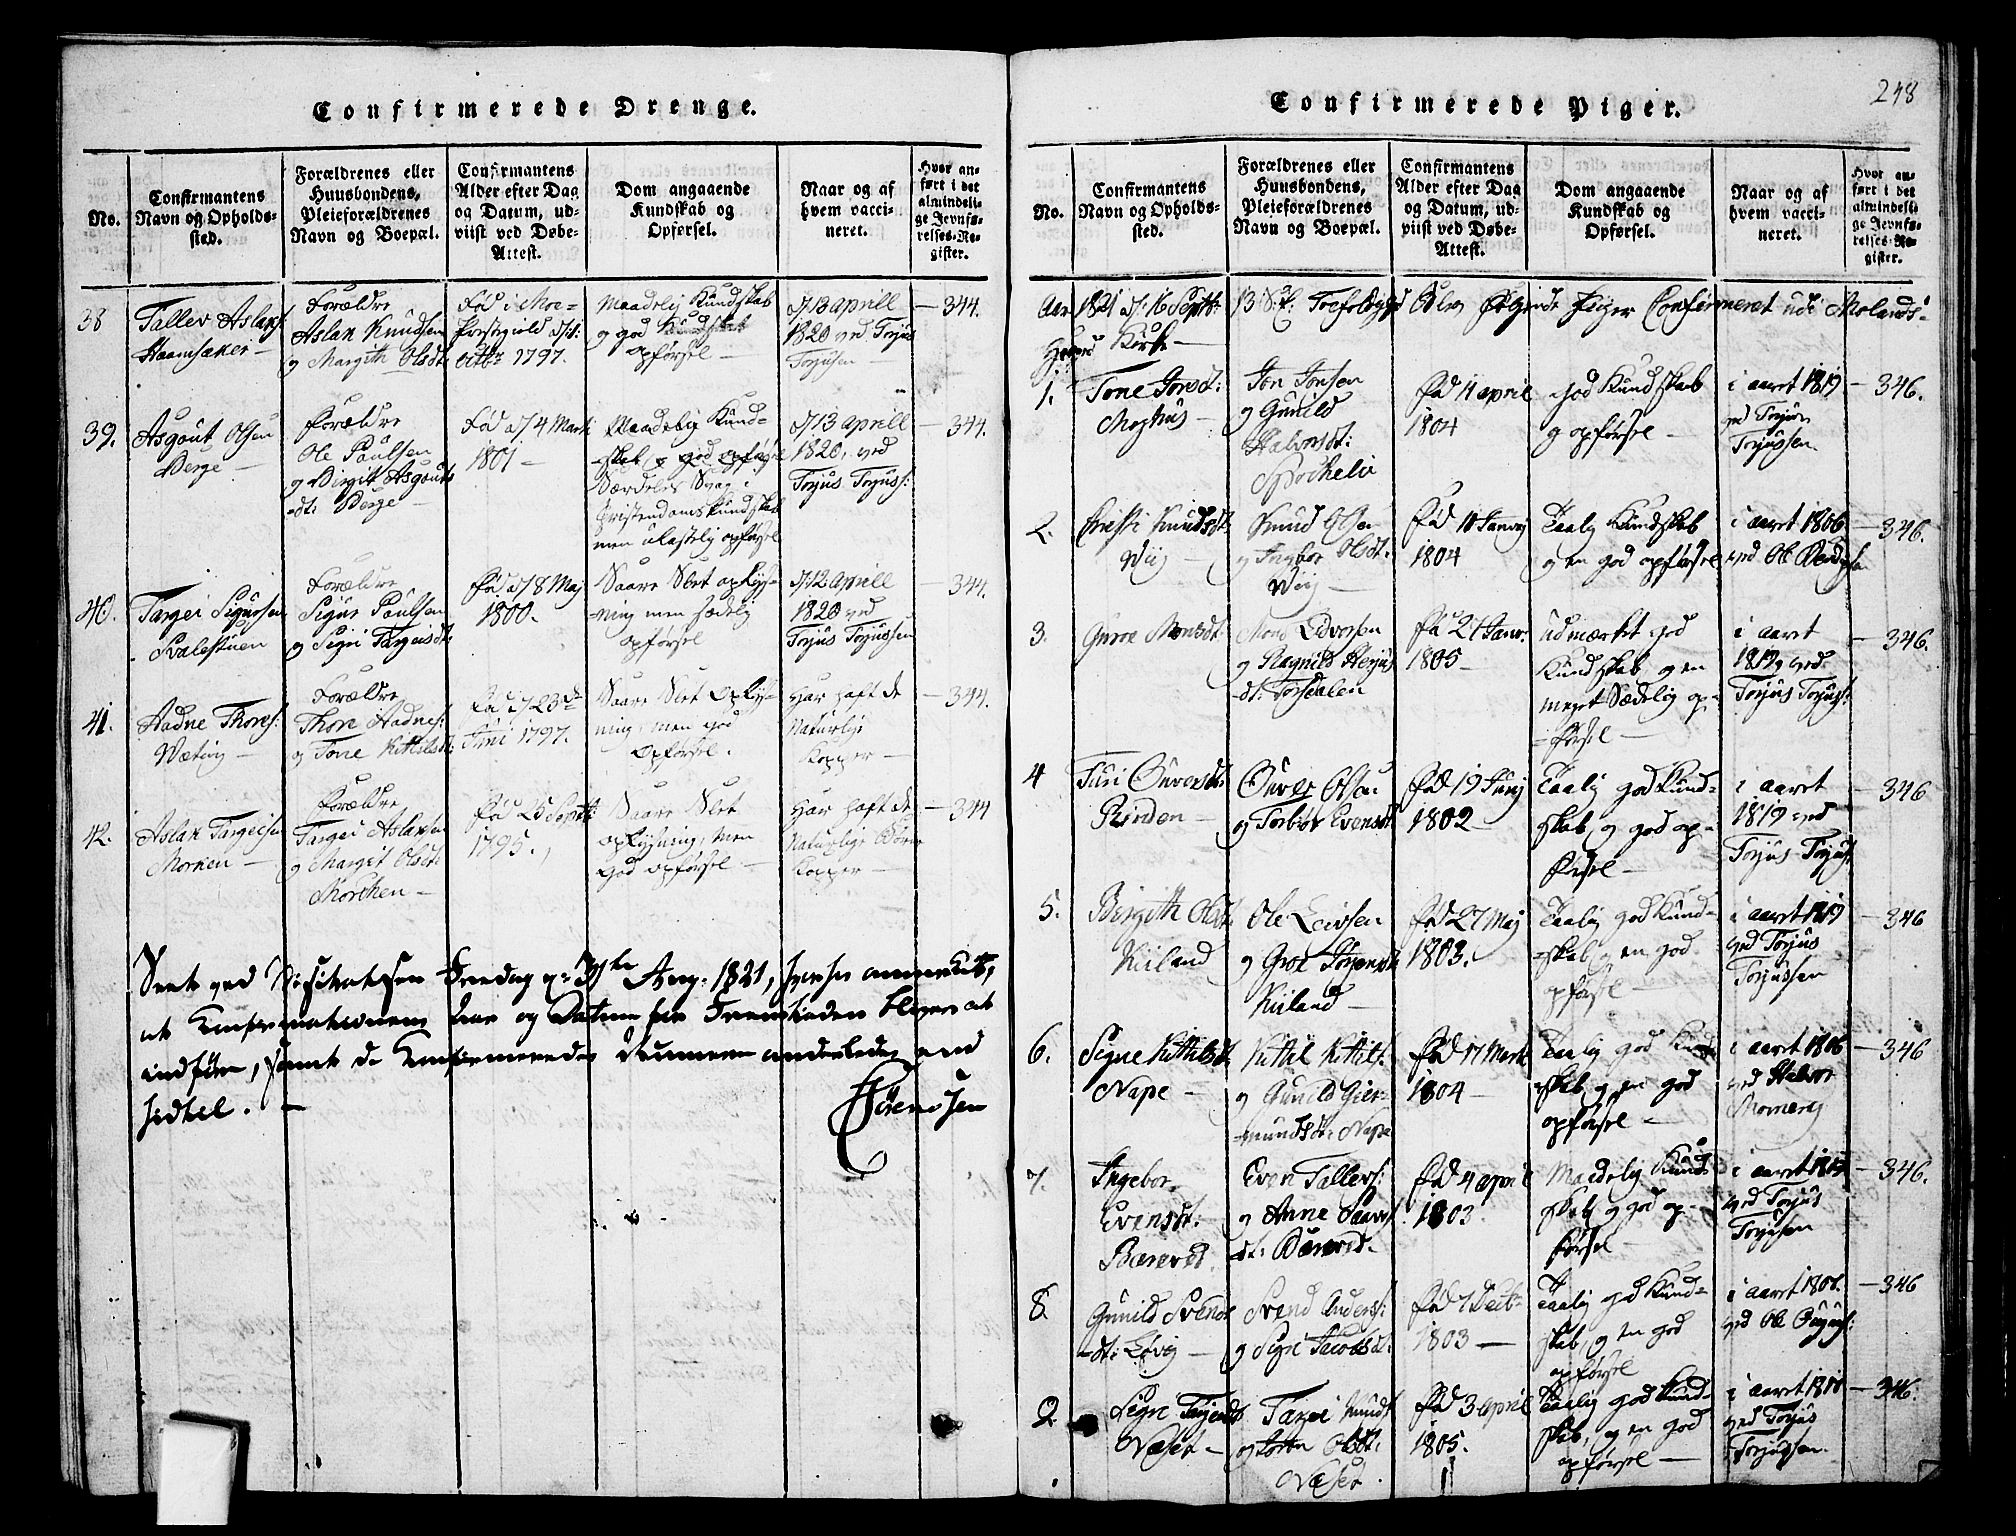 Confirmerede Drenge.
No.
Confirmantens
Navn og Opholds-
sted.
Forældrenes eller
Huusbondens,
Pleieforældrenes
Navn og Boepæl.
Confirmantens
Alder efter Dag
og Datum, ud-
viist ved Døbe-
Attest.
Dom angaaende
Kundskab og
Opførsel.
Naar og af
hvem vacci-
neret.
Hvor an-
ført i det
almindeli-
ge Jevnfø-
relses-Re-
gister.
38
Tallev Aslaks:
Haamsaker
Forældre
Aslak Knudsen
og Margith Olsdt:
Fød i Moe-
octbr 1797.
Maadelig Kundskab
og god
opførsel
d: 13 aprill
1820 ved Torjus
Torjusen
344.
39.
Asgout Olsen
Berge
Forældre
Ole Paulsen
og Birgit Asgouts
dt: Berge
Fød d 4 Martii
1801
Maadelig Kund-
skab, og god opførsel
Særdeles Svag i
Cristendomskundskab
men ulastelig opførsel
d: 13 aprill
1820, ved
Torjus Torjuss:
344.
40.
Targei Sigursen
Svalestuen
Forældre
Sigur Paulsen
og Sigri Targeisdt:
Fød d 8 Maj
1800.
Saare Slet oplys-
ning men sædelig
opførsel
d: 12 aprill
1820 ved
Torjus Torjussen
344.
41.
Aadne Thores:
Væting
Forældre
Thore Aadnes:
og Tone Kittilsdt:
Fød d 23de
Juni 1797.
Saare Slet Oplys-
ning, men god
Opførsel.
Har haft de
Naturlige
Kopper
344.
42.
Aslak Targeisen
Morken
Forældre
Targei Aslaksen
og Marget Olsdt:
Morchen
Fød 25 Septbr:
1795.
Saare Slet
oplysning, men
God opførsel
Har haft de
Naturlige Børne
Kopper
344
Seet ved Visitatsen Fredag d: 31te Aug: 1821, hvorhos anmærkes,
at Confirmationens Aar og Datum for Fremtiden bliver at
indføre, samt de Confirmeredes Nummer anderledes end
hidtil.
Sørenssen
Confirmerede Piger.
248
No.
Confirmantens
Navn og Opholds-
sted.
Forældrenes eller
Huusbondens,
Pleieforældrenes
Navn og Boepæl.
Confirmantens
Alder efter Dag
og Datum, ud-
viist ved Døbe-
Attest.
Dom angaaende
Kundskab og
Opførsel.
Naar og af
hvem vacci-
neret.
Hvor an-
ført i det
almindeli-
ge Jevnfø-
relses-Re-
gister.
Aar 1821 d: 16 Septbr: 13 S: Ef: Trefoldigh: Blev følgende Piger Confirmeret udi Molands
Kirke
1.
Tone Jonsdt:
Moghus
Jon Jonsen
og Gunild
Halvorsdt:
Fød 11 april
1804
god Kundskab
og opførsel
i aaret 1819
ved Torjus
Torjussen
346.
2.
Cristi Knudsdt:
Viig
Knud Olsen
og Ingbor Olsdt:
Viig
Fød 10 Januarj
1804
Taalig Kundskab
og en god opførsel
i aaret 1806
ved Ole
346.
3.
Guroe Monsdt:
Mons Edvorsen
og Ragnild Herjus
dt: Torsdalen
Fød 21 Janr:
1805
Udmærket god
Kundskab og en
meget Sædelig op-
førsel
i aaret
1819 ved
Torjus Torjuss:
346.
4
Turi Ouversdt:
Rinden
Ouver Olsen
og Torbiør Evensdt:
Fød 19 Junij
1802
Taalig god Kund-
skab, og god op-
førsel
i aaret
1819 ved
Torjus Torjuss:
346
5.
Birgith Olsdt:
Kiiland
Ole Leivsen
og Groe
Kiiland
Fød 27 Maj
1803.
Taalig god Kund-
skab, og en god
opførsel
i aaret 1819
ved Torjus
Torjussen
346
6.
Signe Kittilsdt:
Nape
Kittil Kittils:
og Gunild Gier-
mundsdt: Nape
Fød 17 Marti
1804
Taalig god Kund
skab, og en god
opførsel
i aaret 1806
ved Halvor
346
7.
Ingebor
Evensdt:
Evens Tallevs:
og Anne
Fød 4 april
1803
Maadelig Kund
skab, og god op-
førsel
i aaret 1819
ved Torjus
Torjusen
346.
8.
Gunild Svends
dt: Løvig
Svend Anders:
og Signe Jacobsdt:
Fød 7 Decbr
1803
Taalig god Kund-
skab, og en god
opførsel
i aaret
ved Ole
346
9.
Signe
Næset
Targei Knudt
og Olsdt:
Næset.
Fød 3 april
1805.
Taalig god Kund-
skab, og en god
opførsel
i aaret
ved Torjus
Torjussen.
346.